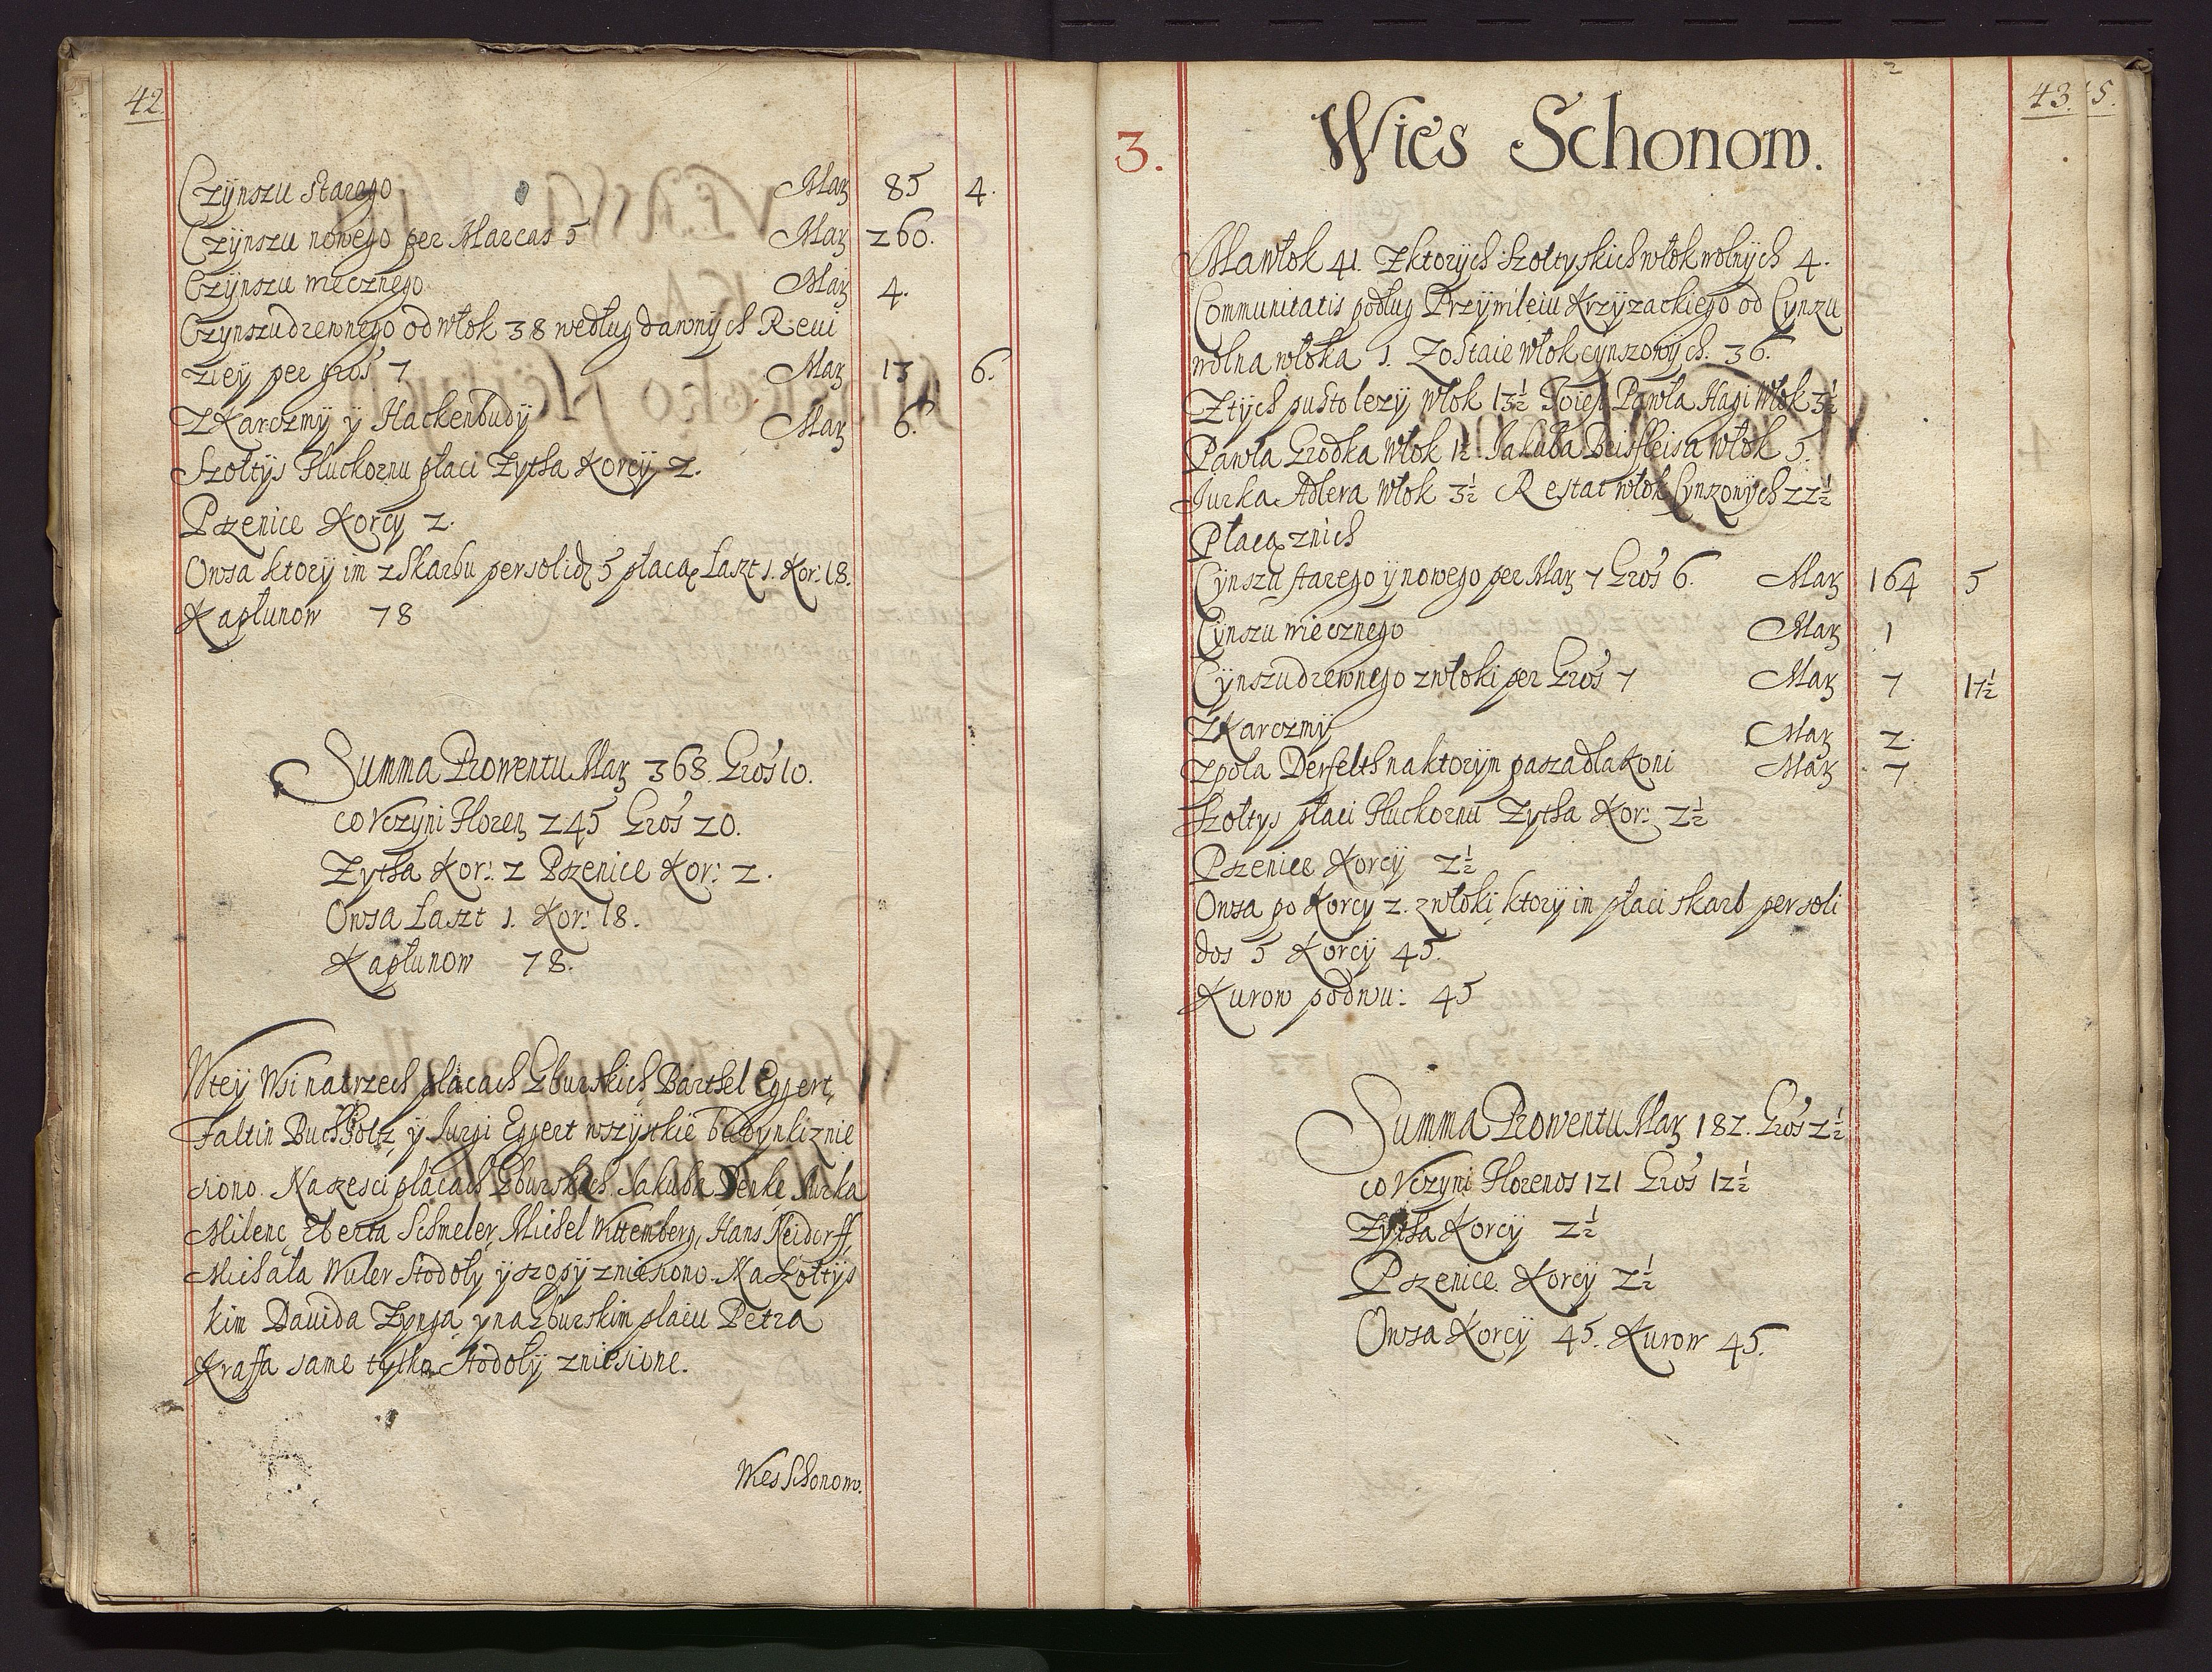 42.
Czÿnszu starego Mar 85 4.
Czÿnszu nowego per Marcas 5 Mar 260.
Czÿnszu wiecznego Mar 4.
Czynszu drewnego od włok 38 według dawnÿch Reui
zieÿ per gros 7 Mar 13 6.
Z Karczmÿ ÿ Hackenbudÿ Mar 6.
Szoltÿs Pluckornu płaci Zytha Korcÿ 2.
Pszenice Korcy 2.
Owsa ktorÿ im z Skarbu per solid 5 płacą Łaszt 1. Kor: 18.
Kapłunow 78
Summa Prowentu Mar 368. Gros 10.
co Vczyni Floren 245 Gros 20.
Zytha Kor: 2 Pszenice Kor: 2.
Owsa Łaszt 1. Kor: 18.
Kapłunow 78.
W teÿ Wsi na trzech płacach Gburskich, Barthel Eggert,
Faltin Buchholtz, ÿ Jurgi Eggert wszystkie budynki znie
siono. Na szesci płacach Gburskich Jakuba Denke, Jurka
Milenc, Eberta Schmeler, Michel Wittemberg, Hans Neidorff,
Michała Wuler Stodołÿ ÿ szopÿ zniesiono. Na Szołtÿs
kim Dauida Zynga, y na Gburskim płacu Petra
Kraffa same tylko Stodołÿ zniesione.
Wies Schonow.
43. 5.
3. Wies Schonow.
Ma włok 41. Z ktorÿch Szołtyskich włok wolnÿch 4.
Communitatis podług Przÿwileiu Krzÿzackiego od Cynzu
wolna włoka 1. Zostaie włok cÿnszowÿch. 36.
Z tÿch pusto lezÿ włok 13½ To iest Pawła Hagi Włok 3½
Pawła Grodka włok 1½ Jakuba Deisfleisa włok 5.
Jurka Adlera włok 3½ Restat włok Cynszowÿch 22½
Płacą z nich
Cÿnszu starego ÿ nowego per Mar 7 Gros 6. Mar 164 5
Cÿnszu wiecznego Mar 1
Cÿnszu drewnego z włoki per Gros 7 Mar 7 17½
Z Karczmÿ Mar 2.
Z pola Derfelth na ktorÿm pasza dla Koni Mar 7
Szołtys płaci Pluckornu Zytha Kor: 2½
Pszenice Korcÿ 2½
Owsa po Korcy 2. z włoki, ktorÿ im płaci skarb per soli
dos 5 Korcÿ 45.
Kurow podwu: 45
Summa Prowentu Mar 182. Gros 2½
co Vczyni Florenos 121 Gros 12½
Zytha Korcÿ 2½
Pszenice Korcÿ 2½
Owsa Korcÿ 45. Kurow 45.